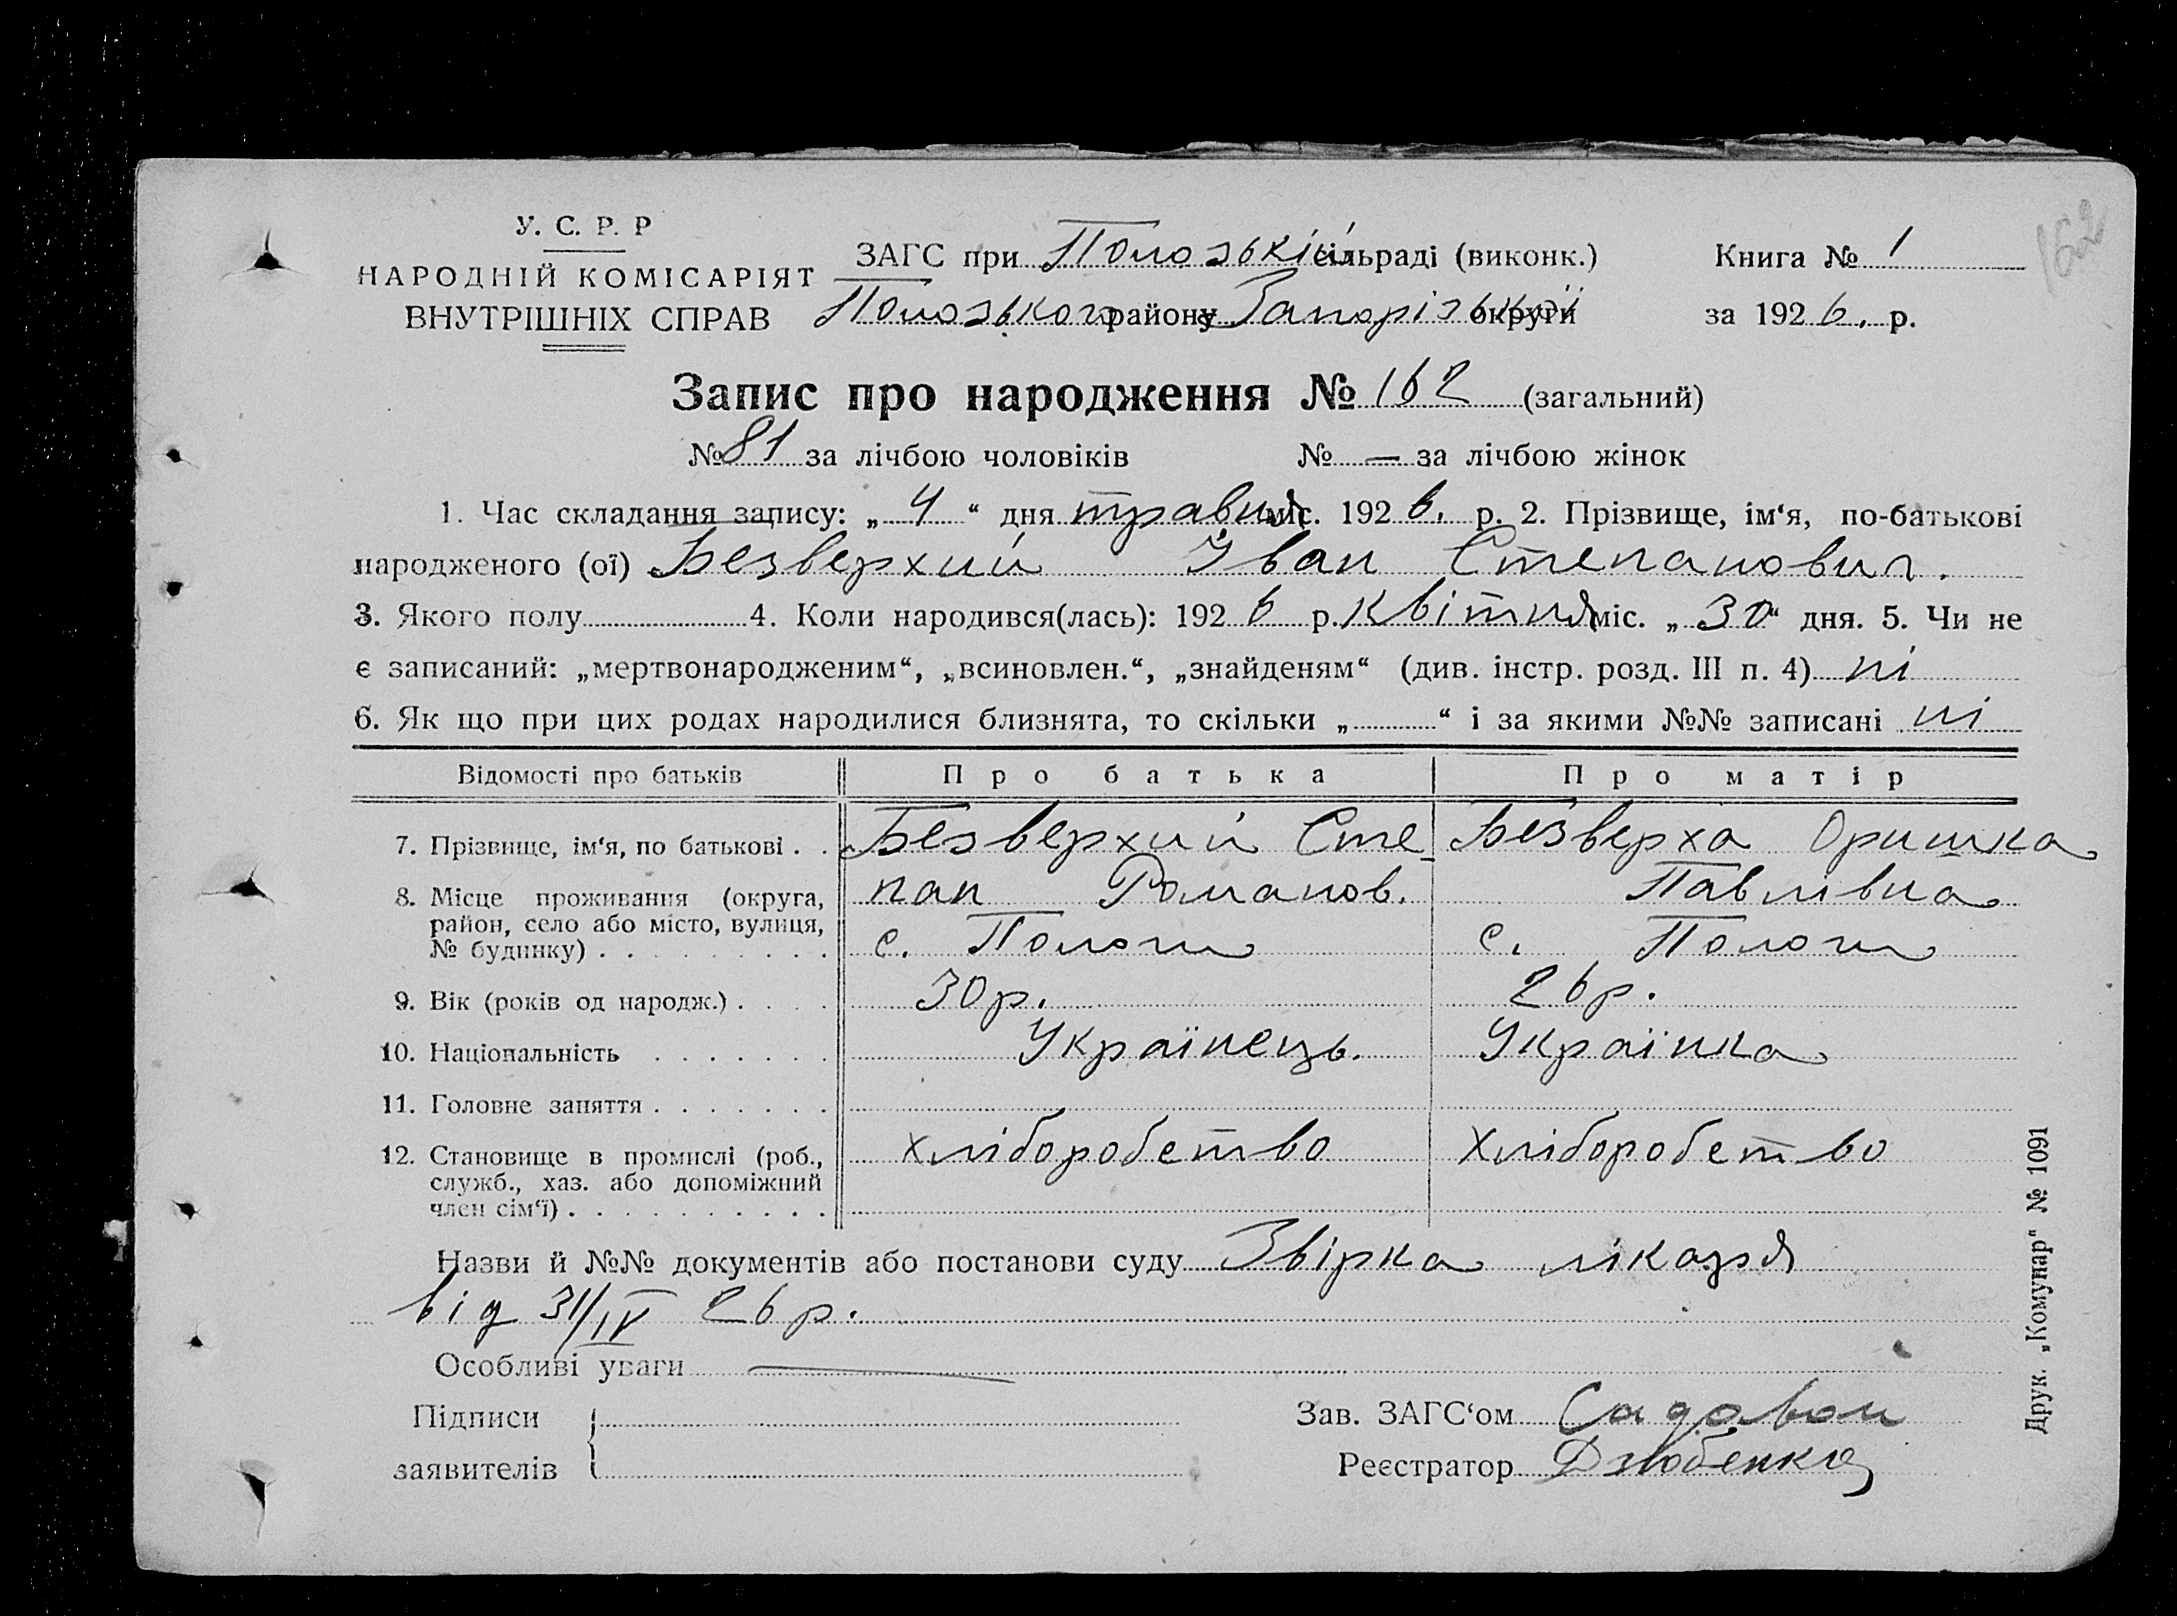 162
У. С. Р. Р
НАРОДНІЙ КОМІСАРІЯТ
ВНУТРІШНІХ СПРАВ
ЗАГС при Пологзькій сільраді (виконк.)
Пологзького району Запорізької округи
Книга № 1
за 1926. р.
Запис про народження № 162 (загальний)
№ 81 за лічбою чоловіків № — за лічбою жінок
1. Час складання запису: „ 4 “ дня травня міс. 1926. р. 2. Прізвище, ім‘я, по-батькові
народженого (ої) Безверхий Іван Степанович.
3. Якого полу 4. Коли народився(лась): 1926 р. Квітня міс. „ 30 “ дня. 5. Чи не
є записаний: „мертвонародженим“, „всиновлен.“, „знайденям“ (див. інстр. розд. III п. 4) ні
6. Як що при цих родах народилися близнята, то скільки „ “ і за якими №№ записані ні
Відомості про батьків Про батька Про матір
7. Прізвище, ім‘я, по батькові . . Безверхий Сте- Безверха Оришка
пан Романов. Павлівна
8. Місце проживання (округа,
район, село або місто, вулиця,
№ будинку) . . . . . . . . . с. Пологи с. Пологи
9. Вік (років од народж.) . . . . 30 р. 26 р.
10. Національність . . . . . . . Українець. Українка
11. Головне заняття . . . . . . .
хліборобство хліборобство
12. Становище в промислі (роб.,
служб., хаз. або допоміжний
член сім‘ї) . . . . . . . . . .
Назви й №№ документів або постанови суду Звірка лікаря
від 31/IV 26 р.
Особливі уваги
Підписи
заявителів
Зав. ЗАГС‘ом Садовой
Реєстратор Дзюбенко
Друк. „Комунар“ № 1091